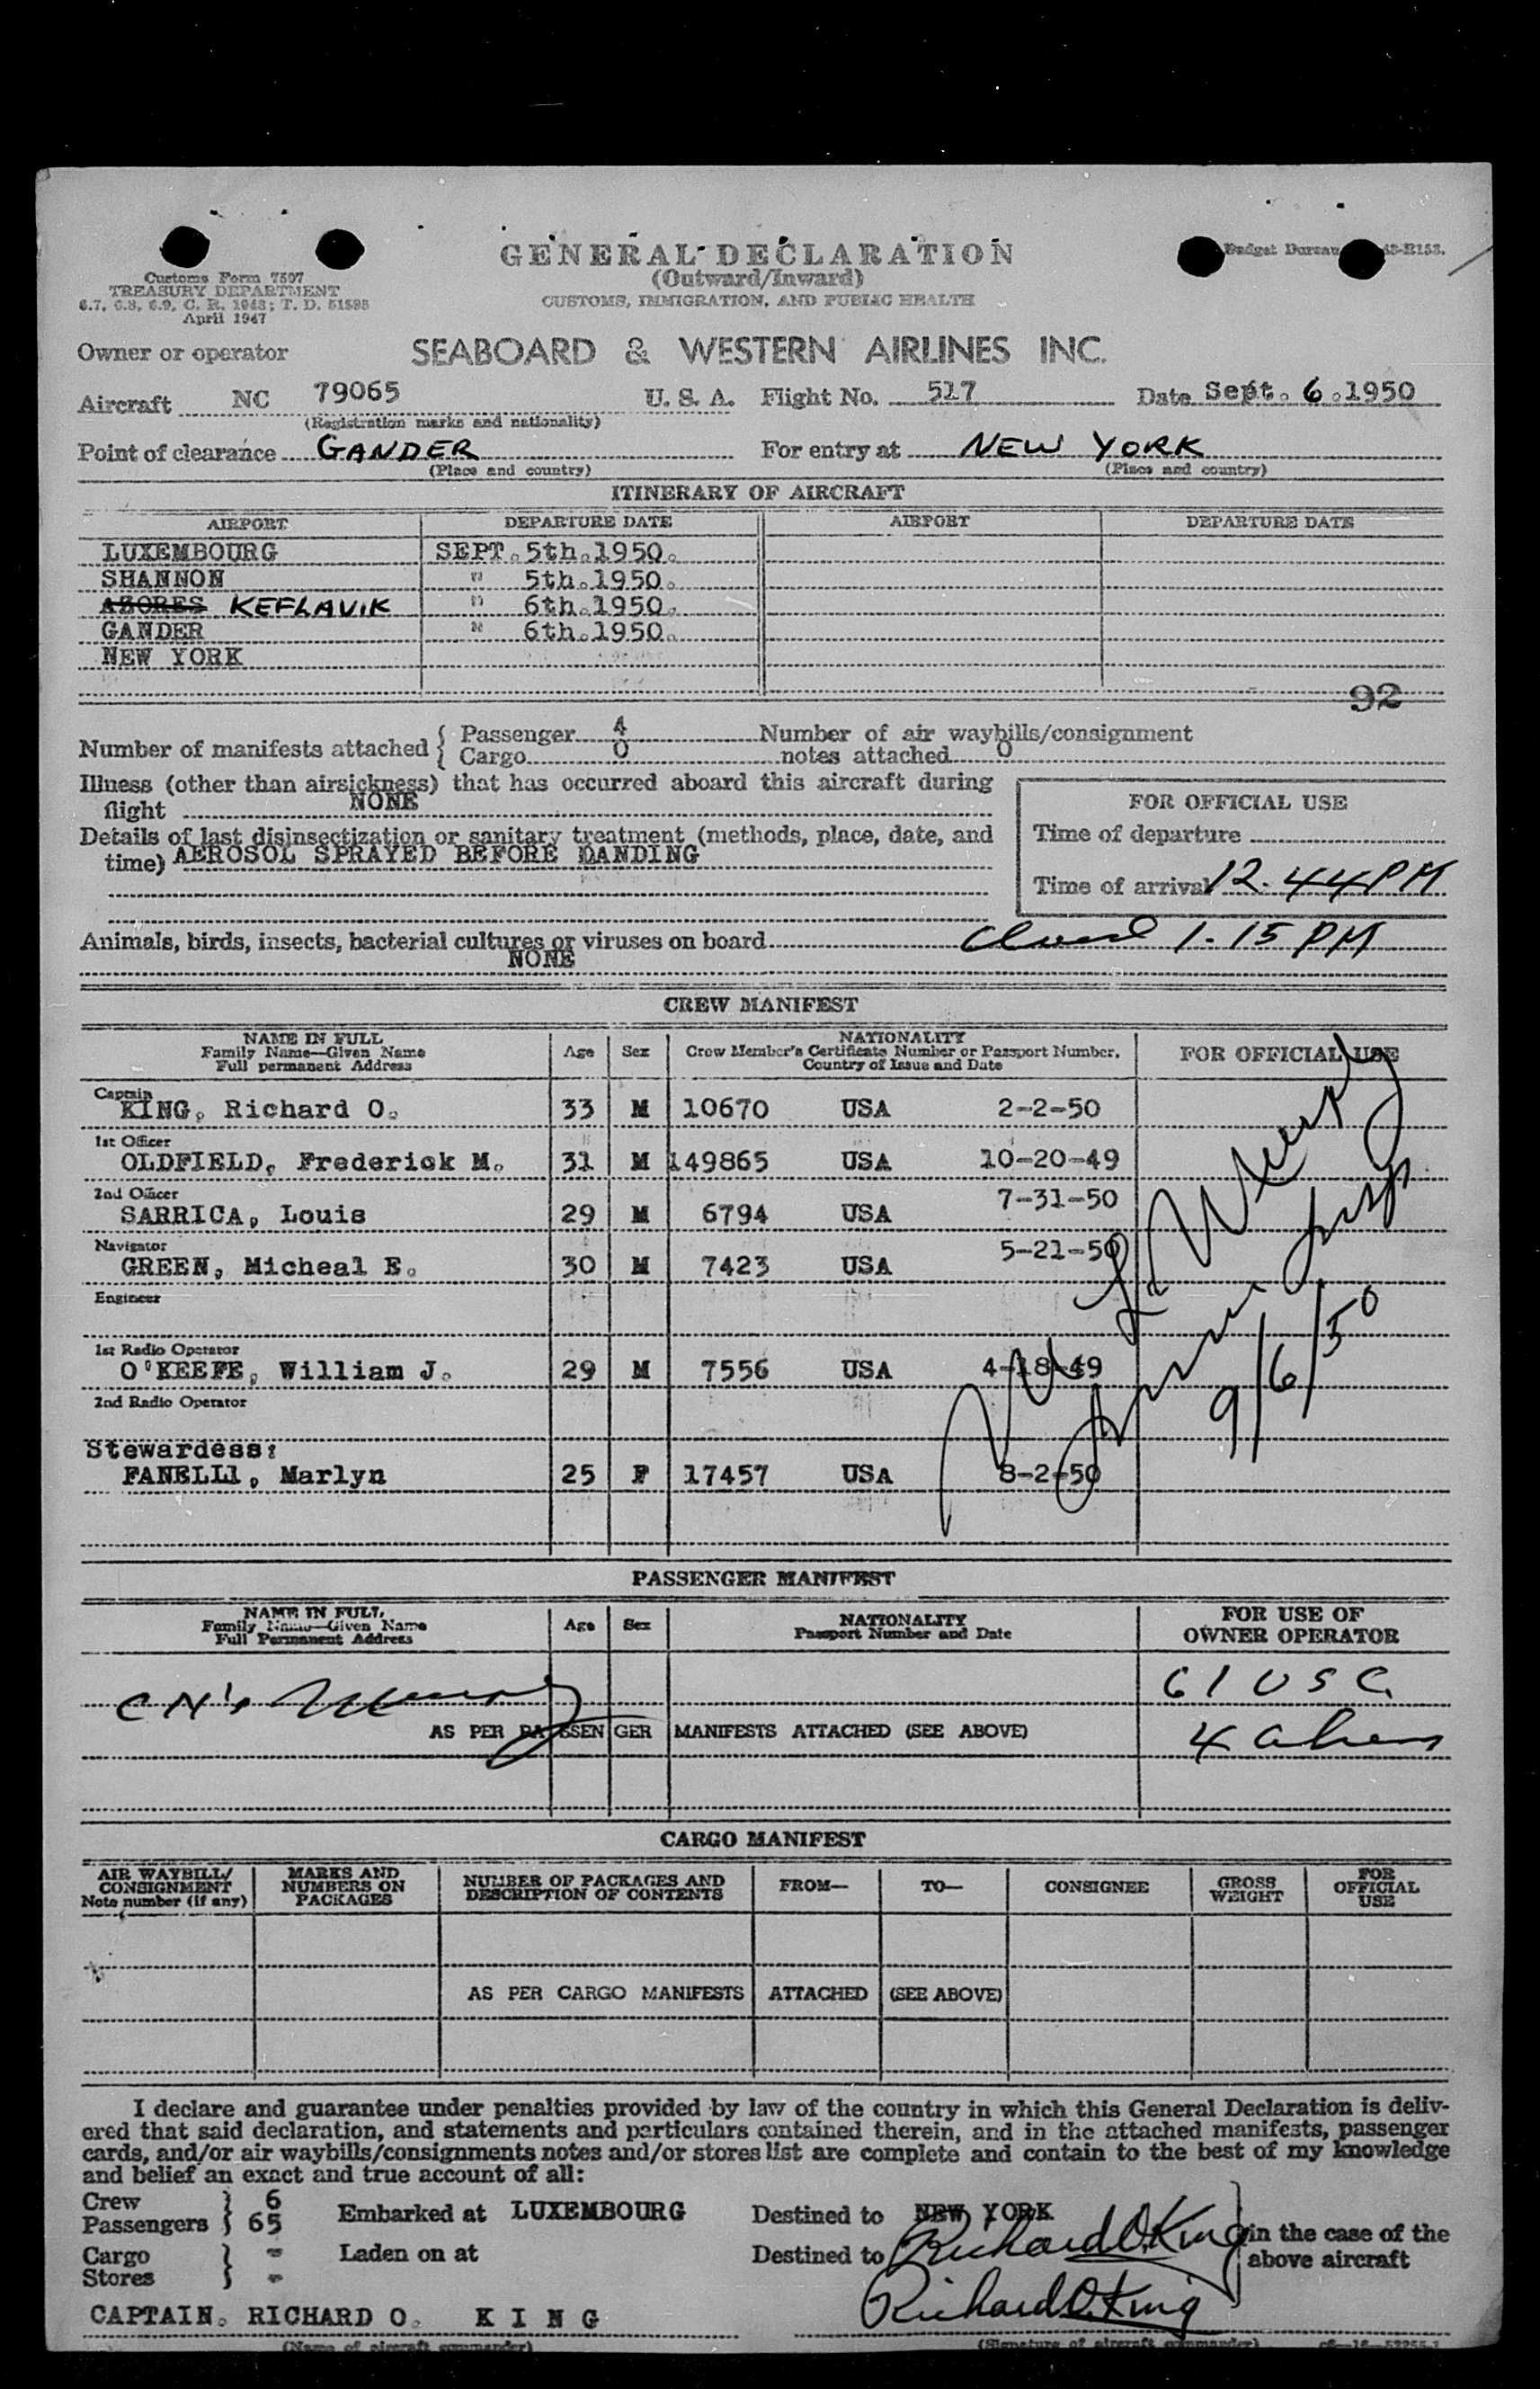 GENERAL DECLARATION
(Outward/Inward)
CUSTOMS, IMMIGRATION, AND PUBLIC HEALTH
Budget Bureau 43-R153.
Customs Form 7507
TREASURY DEPARTMENT
6.7, 6.8, 6.9, C. R. 1943; T. D. 51595
April 1947
Owner or operator SEABOARD & WESTERN AIRLINES INC.
Aircraft NC 79065 U. S. A. Flight No. 517 Date Sept. 6.1950
(Registration marks and nationality)
Point of clearance GANDER For entry at NEW YORK
(Place and country) (Place and country)
ITINERARY OF AIRCRAFT
AIRPORT DEPARTURE DATE AIRPORT DEPARTURE DATE
LUXEMBOURG SEPT. 5th.1950.
SHANNON " 5th.1950.
AZORES KEFLAVIK " 6th.1950.
GANDER " 6th.1950.
NEW YORK
92
Number of manifests attached { Passenger 4 Number of air waybills/consignment
Cargo 0 notes attached 0
Illness (other than airsickness) that has occurred aboard this aircraft during
flight NONE
Details of last disinsectization or sanitary treatment (methods, place, date, and
time) AEROSOL SPRAYED BEFORE LANDING
FOR OFFICIAL USE
Time of departure
Time of arrival 12.44 PM
Animals, birds, insects, bacterial cultures or viruses on board 1.15 PM
NONE
CREW MANIFEST
NAME IN FULL
Family Name—Given Name
Full permanent Address
Age Sex
NATIONALITY
Crew Member's Certificate Number or Passport Number,
Country of Issue and Date
FOR OFFICIAL USE
Captain
KING, Richard O. 33 M 10670 USA 2-2-50
1st Officer
OLDFIELD, Frederick M. 31 M 149865 USA 10-20-49
2nd Officer
SARRICA, Louis 29 M 6794 USA 7-31-50
Navigator
GREEN, Micheal E. 30 M 7423 USA 5-21-50
Engineer
1st Radio Operator
O'KEEFE, William J. 29 M 7556 USA 4-18-49
2nd Radio Operator
Stewardess:
FANELLI, Marlyn 25 F 17457 USA 8-2-50
9/6/50
PASSENGER MANIFEST
NAME IN FULL
Family Name—Given Name
Full Permanent Address
Age Sex
NATIONALITY
Passport Number and Date
FOR USE OF
OWNER OPERATOR
61 USC
AS PER PASSENGER MANIFESTS ATTACHED (SEE ABOVE) 4 aliens
CARGO MANIFEST
AIR WAYBILL/
CONSIGNMENT
Note number (if any)
MARKS AND
NUMBERS ON
PACKAGES
NUMBER OF PACKAGES AND
DESCRIPTION OF CONTENTS
FROM— TO— CONSIGNEE
GROSS
WEIGHT
FOR
OFFICIAL
USE
AS PER CARGO MANIFESTS ATTACHED (SEE ABOVE)
I declare and guarantee under penalties provided by law of the country in which this General Declaration is deliv-
ered that said declaration, and statements and particulars contained therein, and in the attached manifests, passenger
cards, and/or air waybills/consignments notes and/or stores list are complete and contain to the best of my knowledge
and belief an exact and true account of all:
Crew } 6 Embarked at LUXEMBOURG Destined to NEW YORK
Passengers } 65
Cargo } - Laden on at Destined to
Stores } -
in the case of the
above aircraft
Richard O. King
Richard O. King
CAPTAIN. RICHARD O. KING
(Name of aircraft commander) (Signature of aircraft commander)